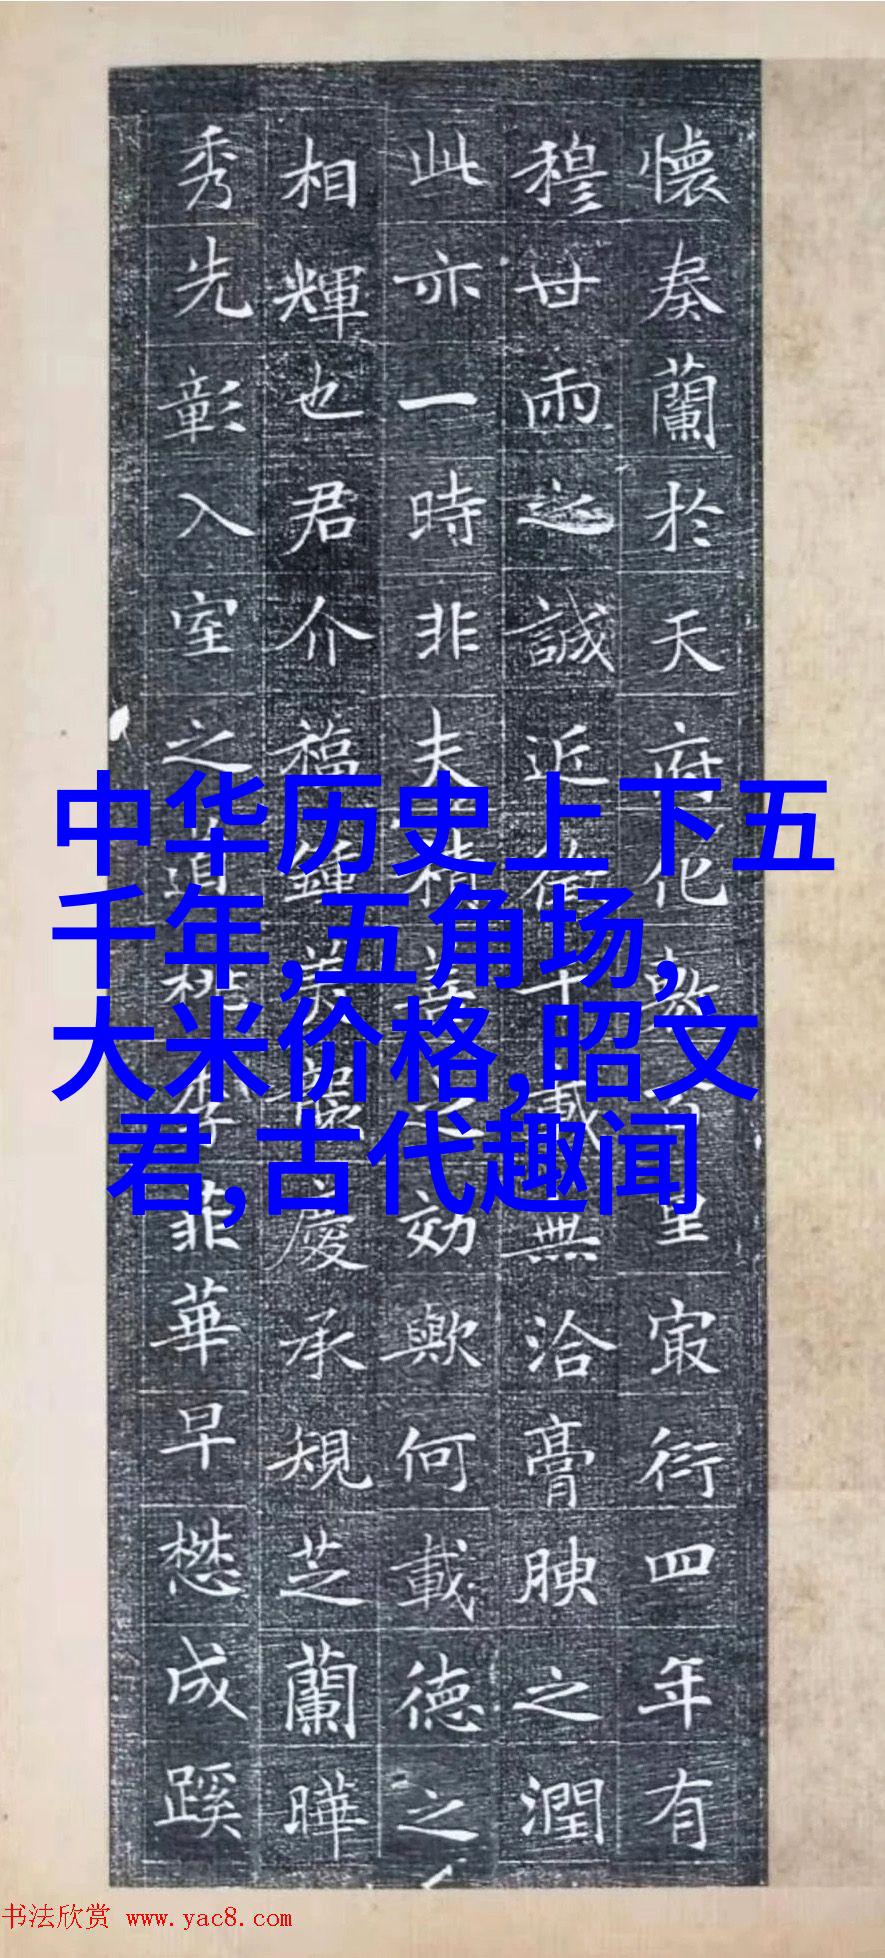 懷奏蘭於天府化里㝡衍四年有
穆廿雨之誠近十載無洽膏腴之潤
此亦一時非夫積善之効歟何載德之
相輝也君介福鍾美慶承規芝蘭曄
秀先彰入室之道桃李菲華早懋成蹊
中华历史上下五
千年,五角场,
大米价格,昭文
君,古代趣闻
书法欣赏 www.yac8.com